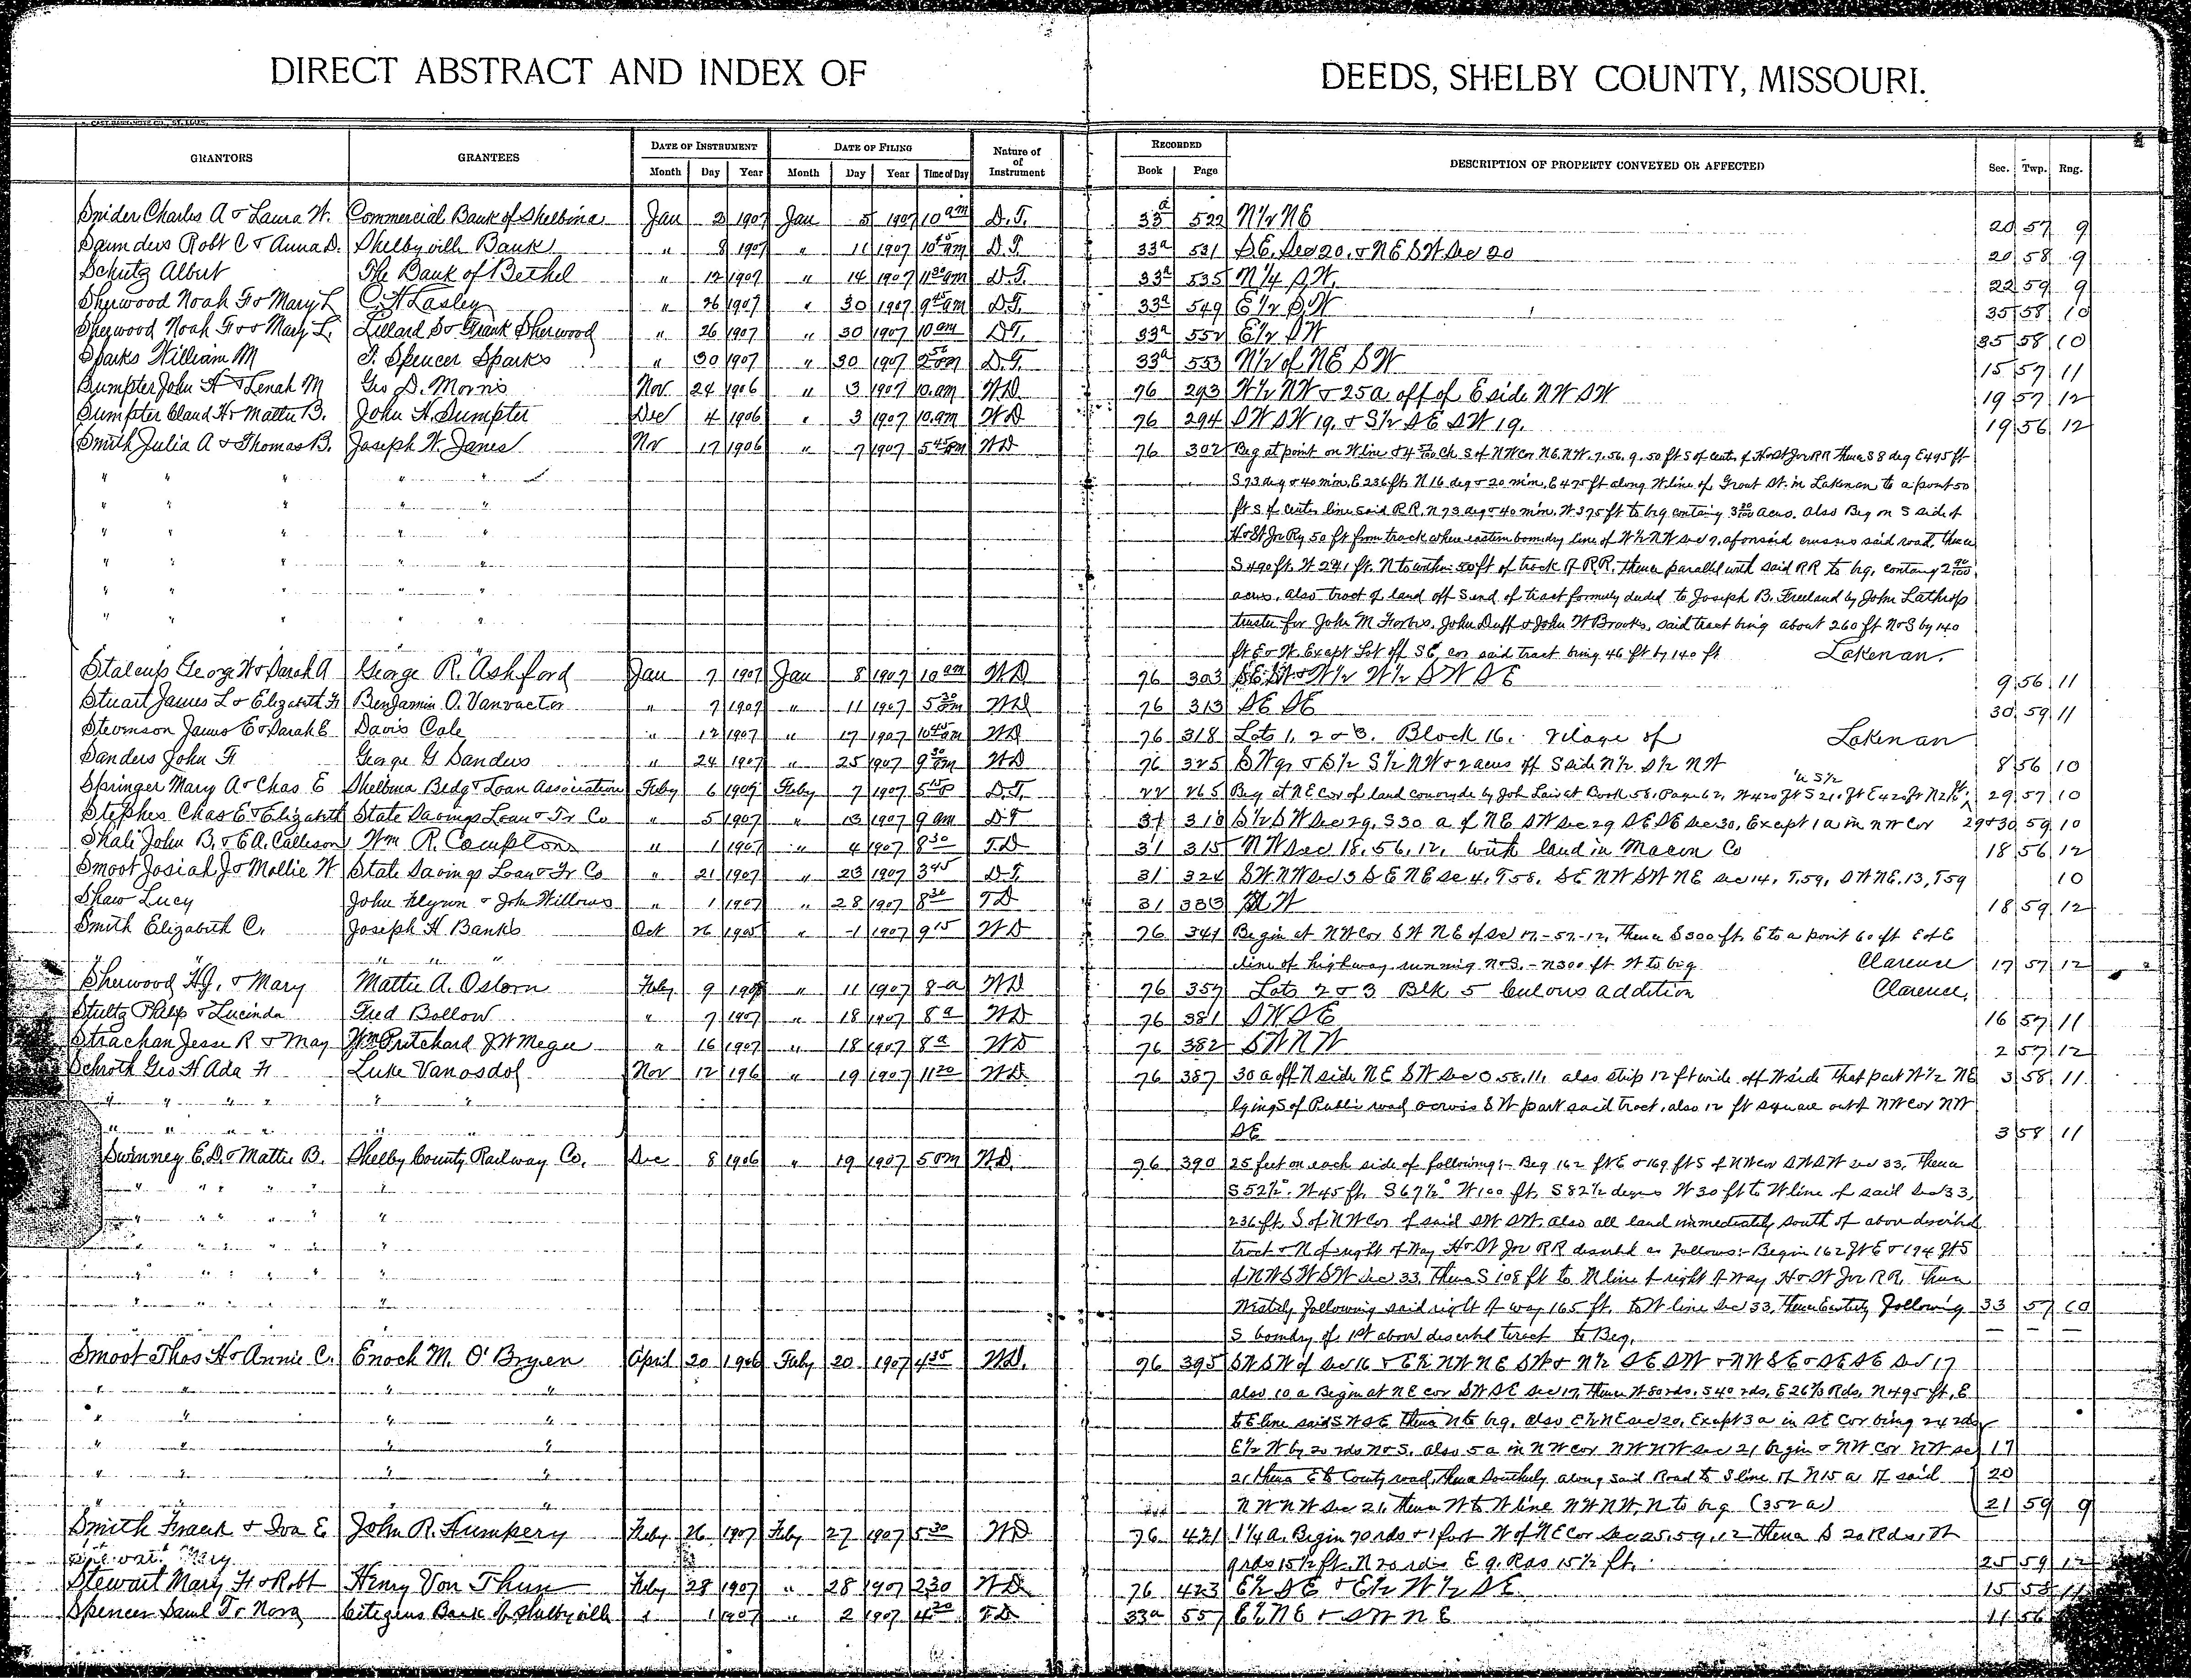 DIRECT ABSTRACT AND INDEX OF DEEDS, SHELBY COUNTY, MISSOURI.
GRANTORS GRANTEES DATE OF INSTRUMENT DATE OF FILING Nature of of Instrument RECORDED DESCRIPTION OF PROPERTY CONVEYED OR AFFECTED Sec. Twp. Rng.
Month Day Year Month Day Year Time of Day Book Page
Snider Charles A & Laura W. Commercial Bank of Shelbina Jan 2 1907 Jan 5 1907 10 am D.T. 33a 522 N½ NE 20 57 9
Saunders Robt C & Anna D. Shelbyville Bank " 8 1907 " 11 1907 10 45 am D.T. 33a 531 SE. Sec 20. & NE SW Sec 20 20 58 9
Schutz Albert The Bank of Bethel " 12 1907 " 14 1907 11 30 am D.T. 33a 535 N¼ SW. 22 59 9
Sherwood Noah F & Mary L C.H. Lasley " 26 1907 " 30 1907 9 45 am D.T. 33a 549 E½ SW 35 58 10
Sherwood Noah F & Mary L. Lillard S & Frank Sherwood " 26 1907 " 30 1907 10 am D.T. 33a 552 E½ SW 35 58 10
Sparks William M T. Spencer Sparks " 30 1907 " 30 1907 2 50 pm D.T. 33a 553 N½ of NE SW 15 57 11
Sumpter John H & Lenah M Geo D. Morris Nov 24 1906 " 3 1907 10 am WD 76 293 W½ NW & 25 a off of E side NW SW 19 57 12
Sumpter Claud H & Mattie B. John H. Sumpter Dec 4 1906 " 3 1907 10 am WD 76 294 SW SW 19. & S½ SE SW 19. 19 56 12
Smith Julia A & Thomas B. Joseph W. Janes Nov 17 1906 " 7 1907 5 45 pm WD 76 302 Beg at point on W line & 4 ch S of NW Cor NE NW. 7. 56. 9. 50 ft S of center of H & St Joe RR Thence S 8 deg E 495 ft
" " " " " S 73 deg & 40 min, E 236 ft. N 16 deg & 20 min, E 475 ft along W line of Grout St. in Lakenan to a point 50
" " " " " ft S of center line said RR. N 73 deg & 40 min. W 375 ft to beg containg 3 acres. also Beg on S side of
" " " " H & St Jo Ry 50 ft from track where eastern boundry line of W½ NW sec 7, aforesaid crosses said road, thence
" " " " S 490 ft. W 241 ft. N to within 50 ft of track of RR. thence parallel with said RR to beg. containg 2
" " " " acres, also tract of land off S end of tract formerly deeded to Joseph B. Freeland by John Lathrop
" " " " trustee for John M Forbes. John Duff & John W Brooks, said tract being about 260 ft N & S by 140
ft E & W. Except Lot off SE cor said tract being 46 ft by 140 ft Lakenan.
Stalcup George W & Sarah A George R. Ashford Jan 7 1907 Jan 8 1907 10 am WD 76 303 W½ SW SE 9 56 11
Stuart James L & Elizabeth F Benjamin O. Vanvactor " 7 1907 " 11 1907 5 30 pm WD 76 313 SE SE 30 59 11
Stevenson James E & Sarah E Davis Cale " 12 1907 " 17 1907 10 45 am WD 76 318 Lots 1, 2 & 3. Block 16. Vilage of Lakenan
Sanders John F. George G Sanders " 24 1907 " 25 1907 9 30 WD 76 325 SW qr & S½ S½ NW & 2 acres off S side N½ S½ NW 8 56 10
Springer Mary A & Chas E Shelbina Bldg & Loan Association Feby 6 1907 Feby 7 1907 5 15 p D.T. 22 265 Beg at NE Cor of land by Book 58, Page 62, W 420 ft S 21. ft E 420 ft 29 57 10
Stephes Chas E & Elizabeth State Savings Loan & Tr Co " 5 1907 " 13 1907 9 am D.T 31 310 S½ SW Sec 29, S 30 a of NE SW sec 29 SE SE sec 30, Except 1 a in NW Cor 29&30 59 10
John B. & E.A. Callison Wm R. Compton " 1 1907 " 4 1907 8 30 T.D 31 315 NW Sec 18, 56, 12, with land in Macon Co 18 56 12
Smoot Josiah J & Mollie W State Savings Loan & Tr Co " 21 1907 " 23 1907 3 45 D.T. 31 324 SW NW Sec 3 SE NE Sec 4, T58, SE NW SW NE sec 14, T59, SW NE. 13, T59 10
Shaw Lucy John Flynn & Joh Willows " 1 1907 " 28 1907 8 30 TD 31 333 18 59 12
Smith Elizabeth C. Joseph H Banks Oct 26 1905 " 1 1907 9 15 WD 76 341 Begin at NW Cor SW NE of Sec 17-57-12, Thence S 300 ft, E to a point 60 ft E of E
" " " line of highway running N & S. - N 300 ft W to beg Clarence 17 57 12
Sherwood H.J. & Mary Mattie A. Osborn Feby 9 1907 " 11 1907 8 a WD 76 357 Lots 2 & 3 Blk 5 addition Clarence.
Stultz Philip & Lucinda Fred Bollow " 7 1907 " 18 1907 8 a WD 76 381 SW SE 16 57 11
Strachan Jesse R & May Wm Pritchard JW Megee " 16 1907 " 18 1907 8 a WD 76 382 SW NW 2 57 12
Schroth Geo H Ada F Luke Vanosdol Nov 12 196 " 19 1907 11 20 WD 76 387 30 a off N side NE SW Sec 58, 11, also strip 12 ft wide off W side That part W½ NE 3 58 11
" " " " " " lying S of Public road across SW part said tract, also 12 ft square out of NW Cor NW
" " " " SE 3 58 11
Swinney E.D. & Mattie B. Shelby County Railway Co. Dec 8 1906 " 19 1907 5 pm W.D. 76 390 25 feet on each side of following:- Beg 162 ft E & 169 ft S of NW cor SW SW sec 33, Thence
" " " " " S 52½° W 45 ft, S 67½° W 100 ft, S 82½ degrees W 30 ft to W line of said Sec 33,
" " " " " 236 ft. S of NW Cor of said SW SW, also all land immediately south of above described
" " " " " tract & N of right of Way H & St Joe RR described as follows:- Begin 162 ft E & 194 ft S
" " " " " of NW SW SW Sec 33, Thence S 108 ft to N line of right of way H & St Joe RR, Thence
" " " " " Westerly following said right of way 165 ft. to W line Sec 33, thence Easterly following 33 57 10
S boundry of 1st above described tract to Beg.
Smoot Thos H & Annie C. Enoch M. O'Bryen April 20 1906 Feby 20 1907 4 35 WD. 76 395 SW SW of Sec 16 & E½ NW NE SW & N½ SE SW & NW SE & SE SE Sec 17
" " " also 10 a Begin at NE cor SW SE sec 17, thence W 80 rds, S 40 rds, E 26⅔ Rds, N 495 ft, E
" " " to E line said SW SE thence N to beg. also E½ NE sec 20, Except 3 a in SE Cor being 24 rds
" " " E½ W by 20 rds N & S. also 5 a in NW cor NW NW sec 21 begin & NW Cor NW sec 17
" " " 21 thence E to County road, thence Southerly along said Road to S line of N 15 a of said 20
" " NW NW Sec 21, thence W to W line NW NW, N to beg (352 a) 21 59 9
Smith Frank & Iva E John R. Humpery Feby 26 1907 Feby 27 1907 5 30 WD 76 421 1¼ a. Begin 70 rds & 1 foot W of NE Cor Sec 25, 59, 12 thence S 20 Rds, W
Mary 9 rds 15½ ft. N 20 rds E 9. Rds 15½ ft. 25 59 12
Stewart Mary F & Robt Henry Von Thun Feby 28 1907 " 28 1907 2 30 WD 76 423 E½ SE & E½ W½ SE. 15 58 11
Spencer Saml T & Nora Citizens Bank of Shelbyville " 1 1907 " 2 1907 4 20 T.D 33a 557 E½ NE & SW NE 11 56